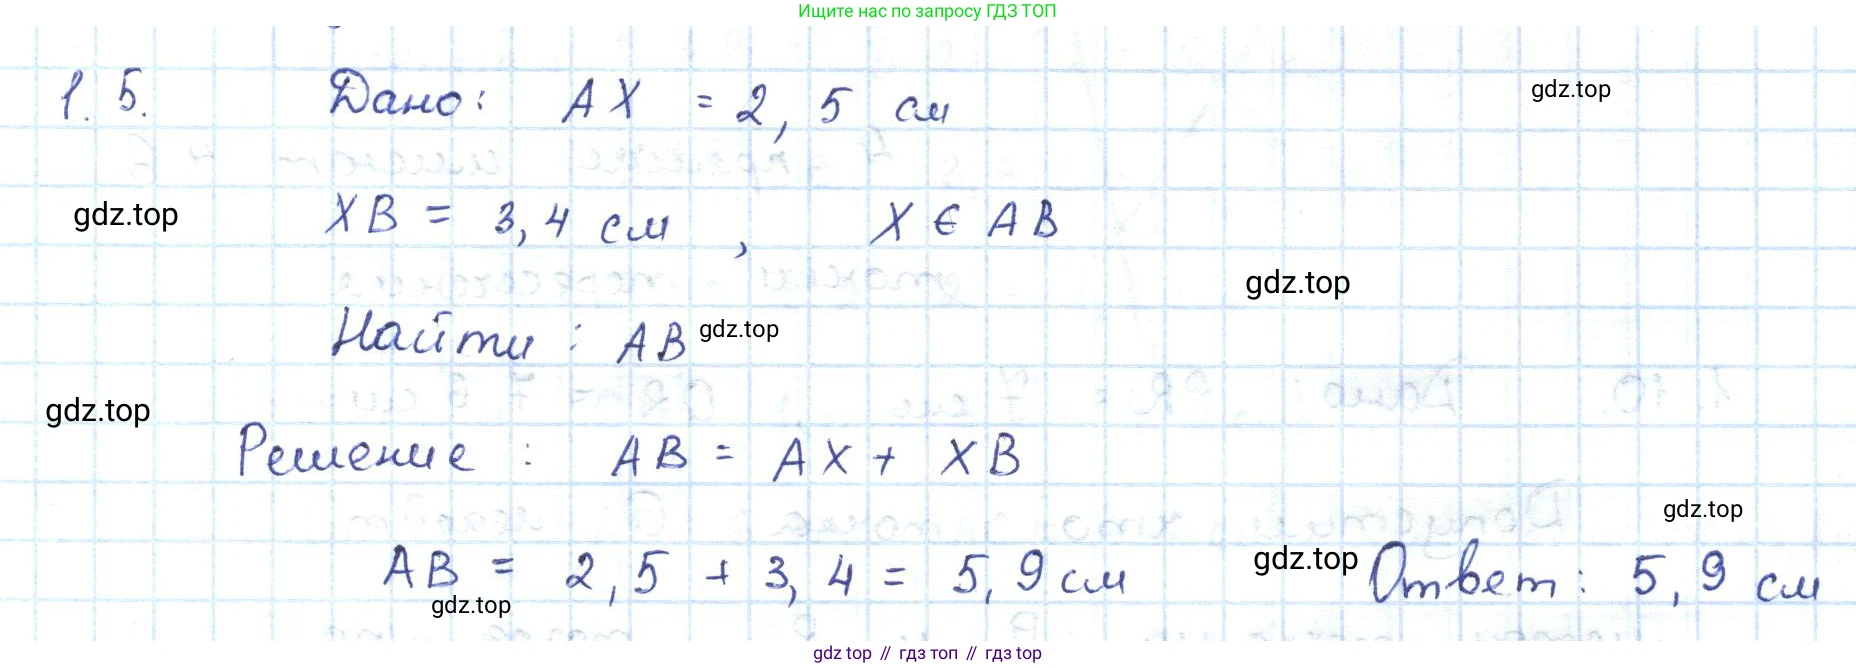 Ищите нас по запросу ГДЗ ТОП
1.5. Дано: AX = 2,5 см
gdz.top
gdz.top
XB = 3,4 см, X ∈ AB
gdz.top
Найти: AB
gdz.top
gdz.top
Решение: AB = AX + XB
gdz.top
AB = 2,5 + 3,4 = 5,9 см
gdz.top
Ответ: 5,9 см
gdz.top
gdz top // гдз топ // gdz top